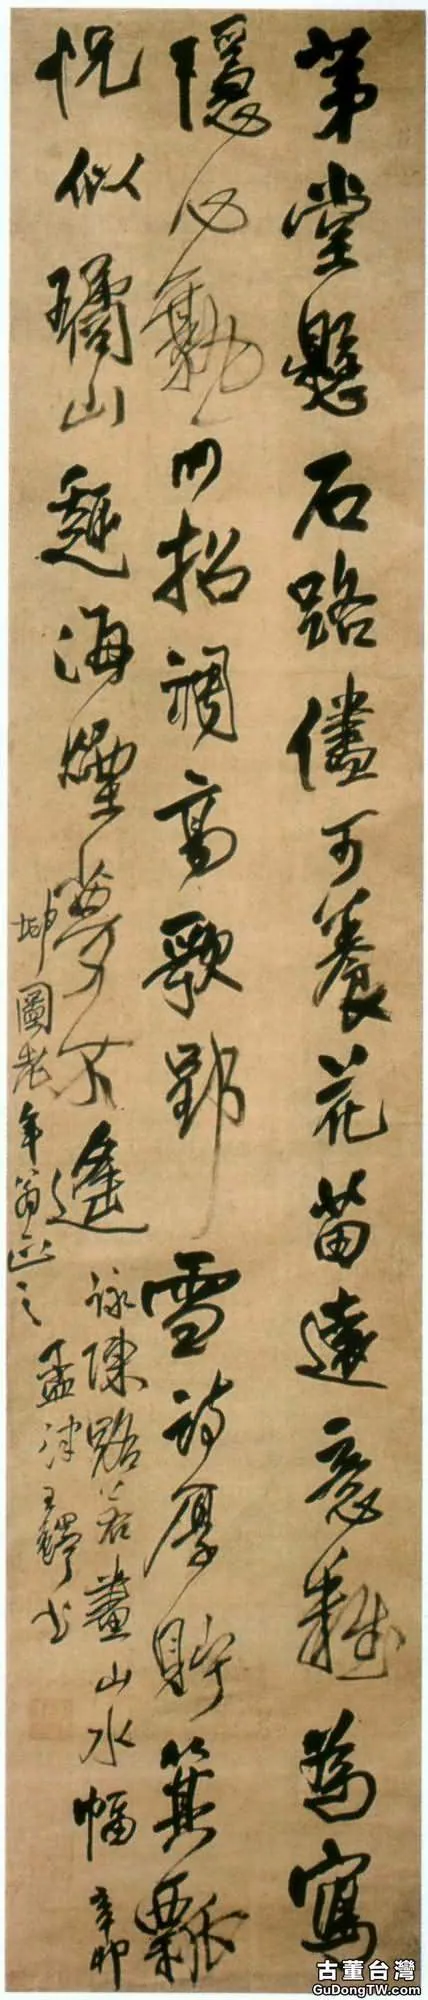 茅堂懸石路儘可養花苗遠意難為寫
隱心勤招調高歌郢雪詩厚貯箕瓢
怳似璚山趣海煙夢不遙
詠陳路若畫山水幅 辛卯
坤圖老年翁正之 孟津王鐸書
古董台灣
GuDongTW.com